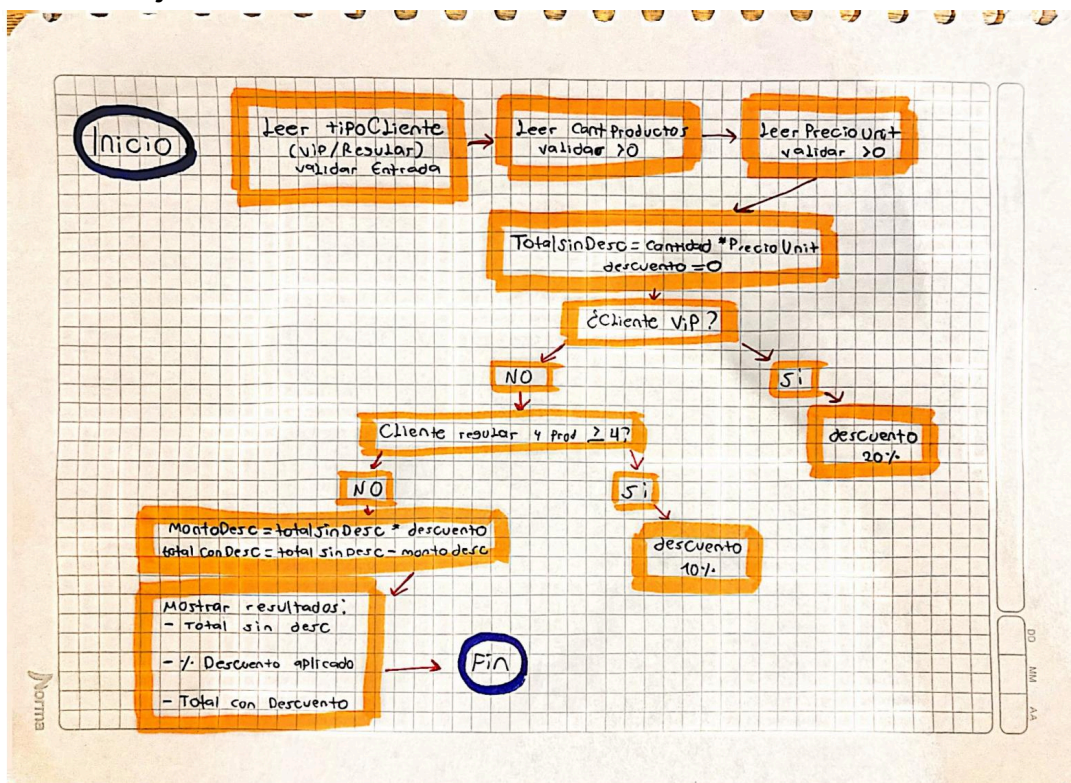 Inicio
Leer tipoCliente
(ViP/Regular)
validar Entrada
Leer CantProductos
validar >0
Leer PrecioUnit
validar >0
TotalsinDesc = cantidad * PrecioUnit
descuento = 0
¿Cliente ViP?
NO
Si
descuento
20%
Cliente regular y Prod ≥ 4?
NO
Si
descuento
10%
MontoDesc = totalsinDesc * descuento
total conDesc = total sinDesc - monto desc
Mostrar resultados:
- Total sin desc
- % Descuento aplicado
- Total con Descuento
Fin
Norma
DD MM AA